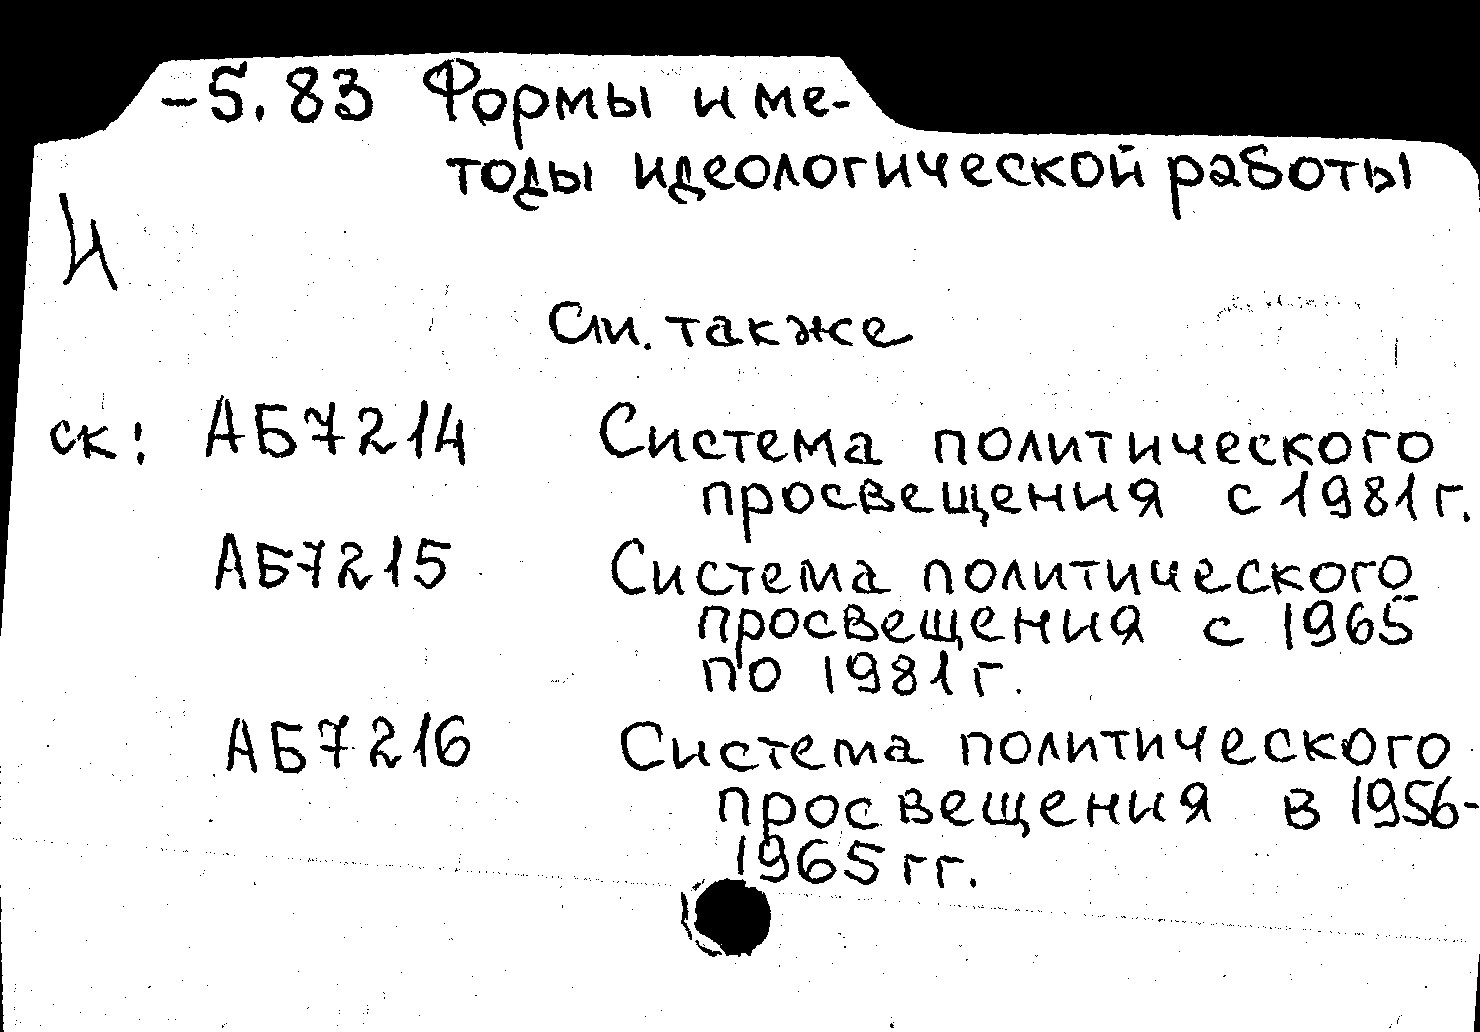 -5.83 Формы и ме-
тоды идеологической работы
И
См. также
ск: АБ7214 Система политического
просвещения с 1981г.
АБ7215 Система политического
просвещения с 1965
по 1981г.
АБ7216 Система политического
просвещения в 1956-
1965гг.